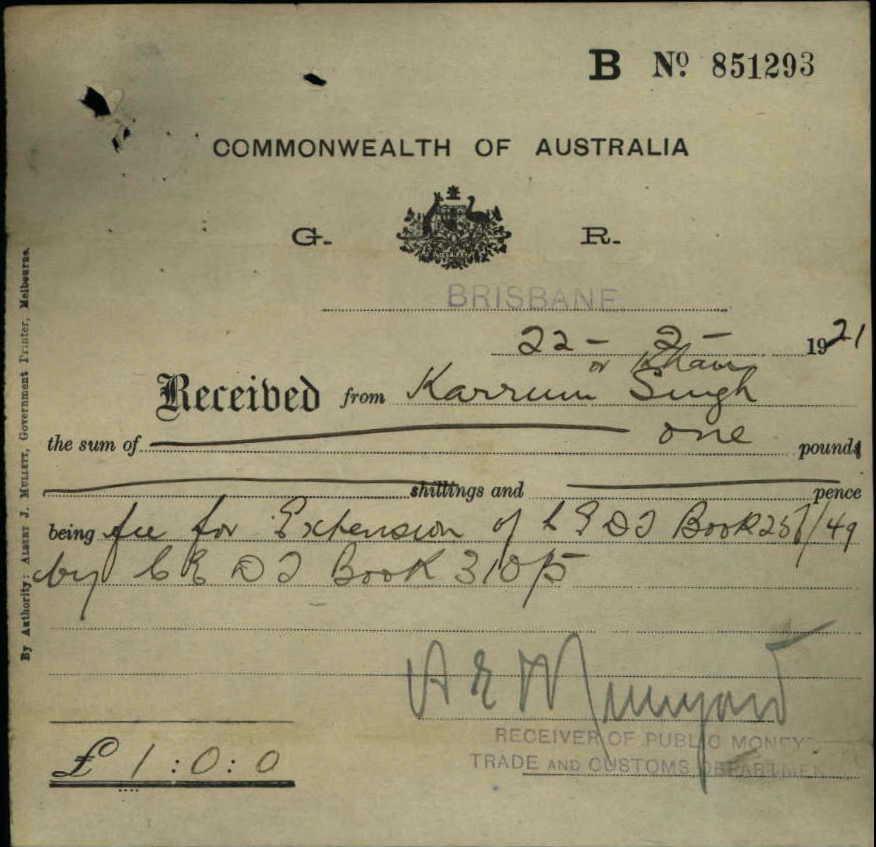 B Nº 851293
COMMONWEALTH OF AUSTRALIA
G. R.
BRISBANE
22 - 2 - 1921
or Khan
Received from Karrum Singh
the sum of one pounds
shillings and pence
being fee for Extension of C E D T Book 251/49
by C E D T Book 310/5
A E
RECEIVER OF PUBLIC MONEYS
TRADE AND CUSTOMS DEPARTMENT
£ 1 : 0 : 0
By Authority: ALBERT J. MULLETT, Government Printer, Melbourne.